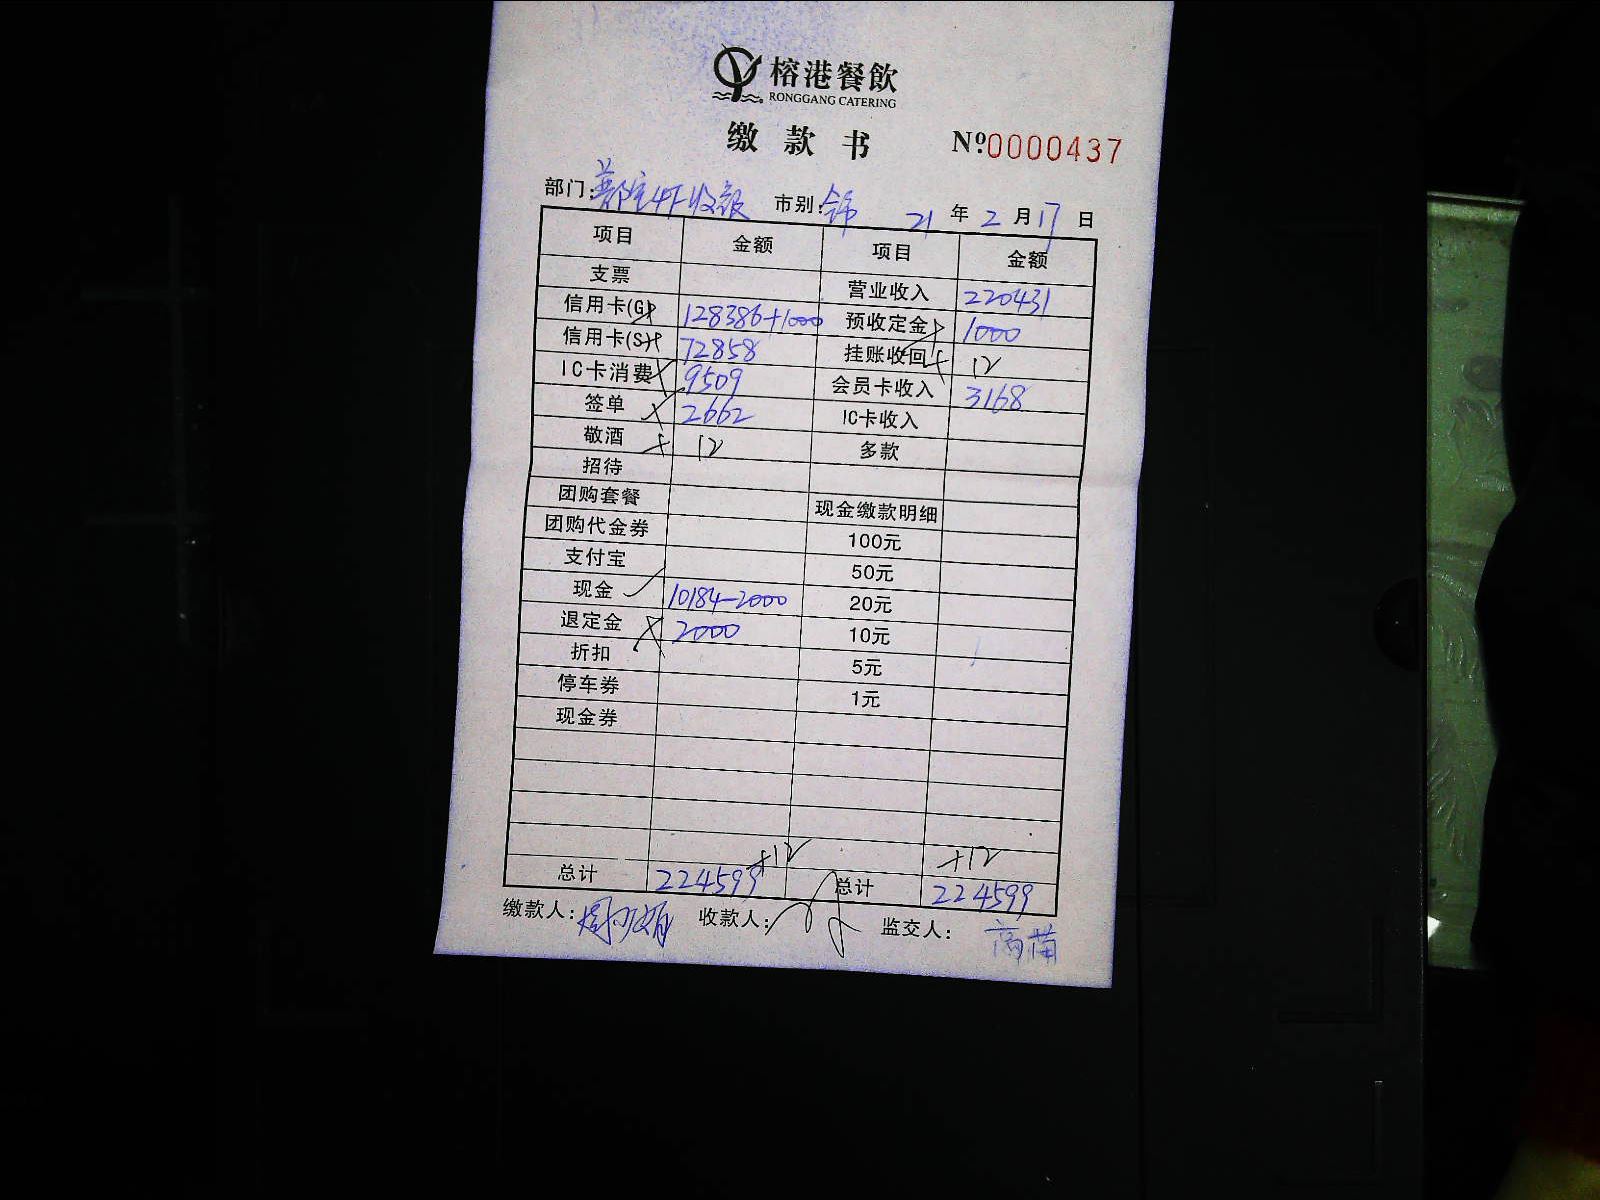 榕港餐飲
RONGGANG CATERING
缴款书 №0000437
部门: 4F收 市别: 21年2月17日
项目 金额 项目 金额
支票 营业收入 220431
信用卡(G) 128386+1000 预收定金 1000
信用卡(S) 72858 挂账收回 12
IC卡消费 9509 会员卡收入 3168
签单 2662 IC卡收入
敬酒 12 多款
招待
团购套餐 现金缴款明细
团购代金券 100元
支付宝 50元
现金 10184-2000 20元
退定金 2000 10元
折扣 5元
停车券 1元
现金券
+12 +12
总计 224599 总计 224599
缴款人: 收款人: 监交人: 高苗